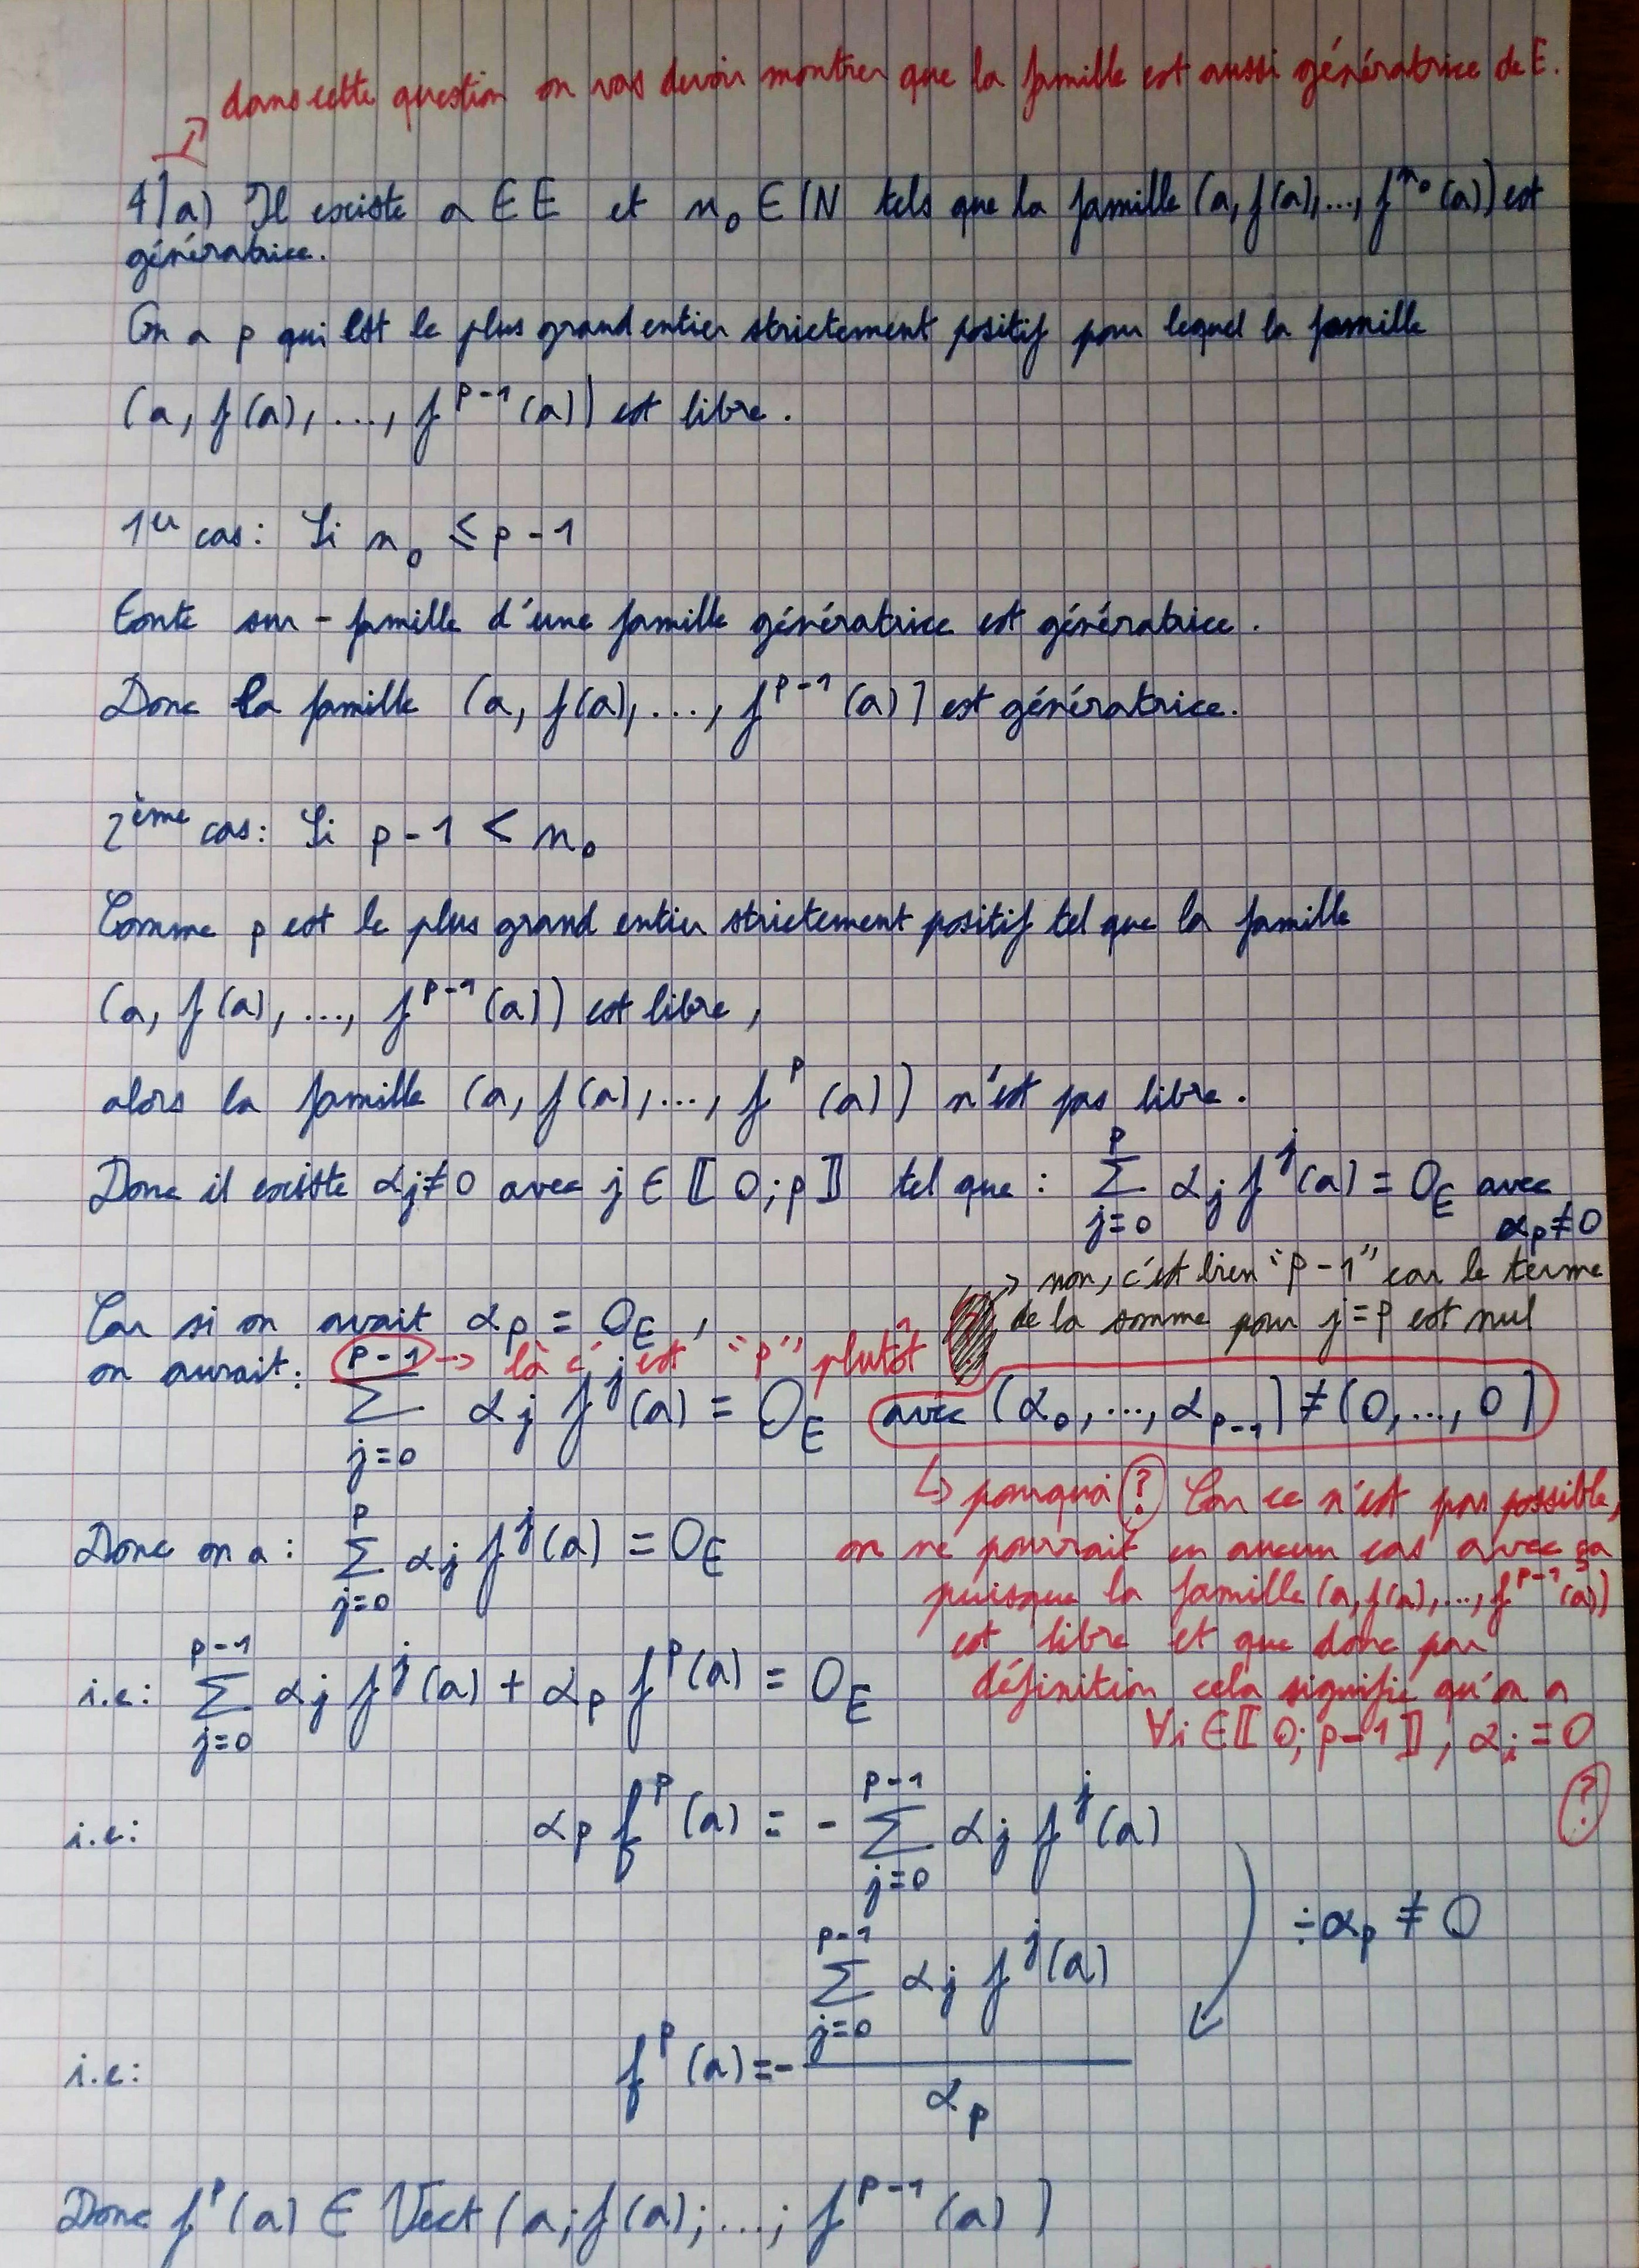 dans cette question on vas devoir montrer que la famille est aussi génératrice de E.
4)a) Il existe a ∈ E et n₀ ∈ ℕ tels que la famille (a, f(a),..., f^{n₀}(a)) est
génératrice.
On a p qui est le plus grand entier strictement positif pour lequel la famille
(a, f(a), ..., f^{p-1}(a)) est libre.
1er cas: Si n₀ ≤ p-1
Toute sur-famille d'une famille génératrice est génératrice.
Donc la famille (a, f(a),..., f^{p-1}(a)) est génératrice.
2ème cas: Si p-1 < n₀
Comme p est le plus grand entier strictement positif tel que la famille
(a, f(a), ..., f^{p-1}(a)) est libre,
alors la famille (a, f(a),..., f^p(a)) n'est pas libre.
Donc il existe αj≠0 avec j ∈ ⟦0;p⟧ tel que : ∑_{j=0}^{p} αj f^j(a) = 0_E avec
αp≠0
→ non, c'est bien "p-1" car le terme
de la somme pour j=p est nul
Car si on avait αp = 0_E,
on aurait: p-1 → là c'est "p" plutôt
∑_{j=0} αj f^j(a) = 0_E avec (α₀,..., α_{p-1}) ≠ (0,..., 0)
↳ pourquoi ? Car ce n'est pas possible,
on ne pourrait en aucun cas avec ça
puisque la famille (a, f(a),..., f^{p-1}(a))
est libre et que donc par
définition cela signifie qu'on a
∀i ∈ ⟦0; p-1⟧, αi = 0
?
Donc on a : ∑_{j=0}^{p} αj f^j(a) = 0_E
i.e: ∑_{j=0}^{p-1} αj f^j(a) + αp f^p(a) = 0_E
i.e: αp f^p(a) = - ∑_{j=0}^{p-1} αj f^j(a)
÷αp ≠ 0
i.e: f^p(a) = - \frac{∑_{j=0}^{p-1} αj f^j(a)}{αp}
Donc f^p(a) ∈ Vect(a; f(a); ...; f^{p-1}(a))